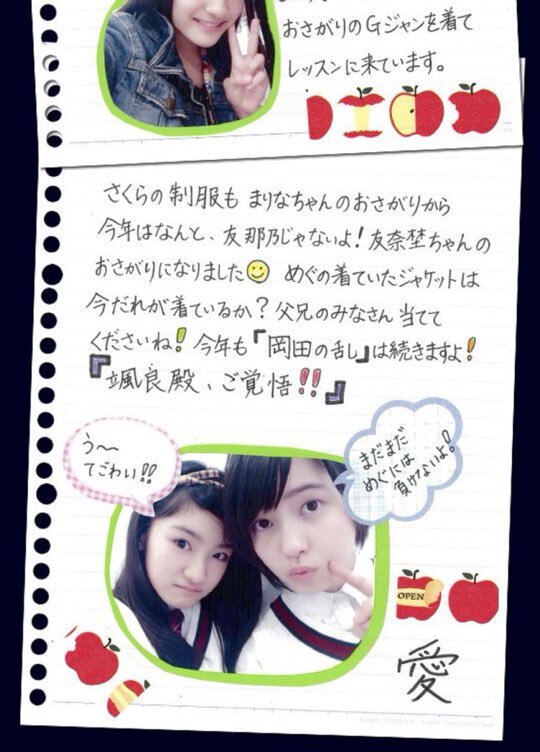 おさがりのGジャンを着て
レッスンに来ています。
さくらの制服も まりなちゃんのおさがりから
今年はなんと、友那乃じゃないよ!友奈埜ちゃんの
おさがりになりました めぐの着ていたジャケットは
今だれが着ているか?父兄のみなさん当てて
くださいね! 今年も「岡田の乱し」は続きますよ!
『颯良殿、ご覚悟!!』
う〜
てごわい!!
まだまだ
めぐには
負けないよ!
OPEN
愛